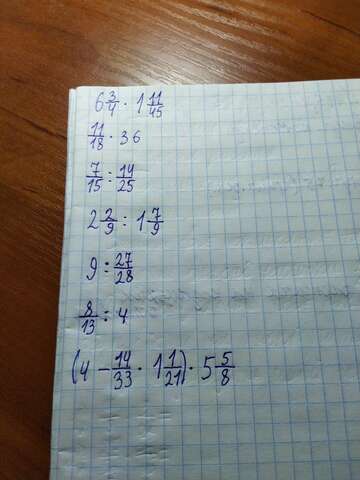 6 3/4 · 1 11/45
11/18 · 36
7/15 : 14/25
2 2/9 : 1 7/9
9 : 27/28
8/13 : 4
(4 - 14/33 · 1 1/21) · 5 5/8